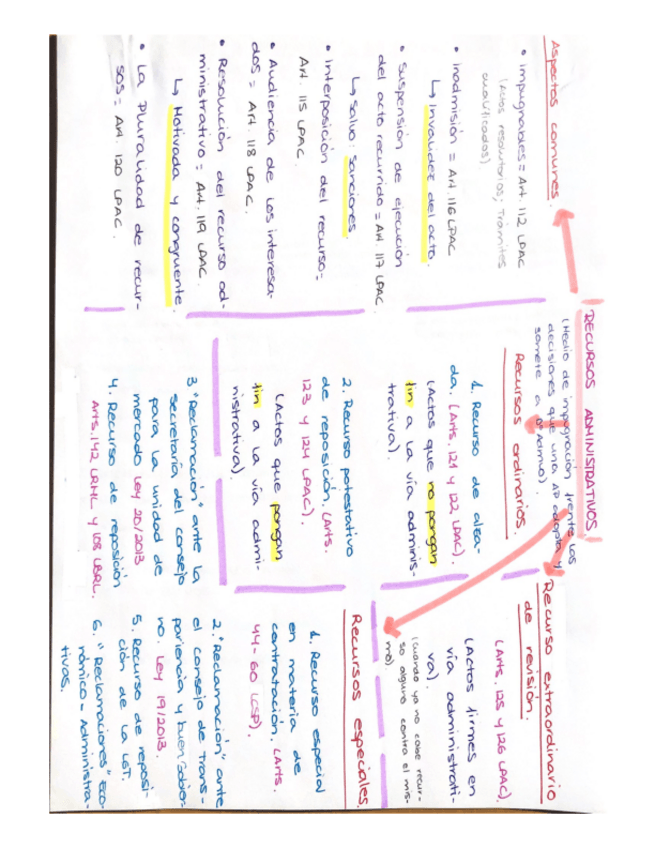 RECURSOS ADMINISTRATIVOS
(Medio de impugnación frente los
decisiones que una AP adopta y
somete a Dº Admvo).
Aspectos comunes.
• impugnables = Art. 112 LPAC
(Actos resolutorios; Trámites
cualificados)
• inadmisión = Art. 116 LPAC
↳ Invalidez del acto.
• Suspensión de ejecución
del acto recurrido = Art. 117 LPAC.
↳ Salvo: sanciones
• Interposición del recurso =
Art. 115 LPAC.
• Audiencia de los interesa-
dos = Art. 118 LPAC.
• Resolución del recurso ad-
ministrativo = Art. 119 LPAC.
↳ Motivada y congruente.
• La pluralidad de recur-
sos = Art. 120 LPAC.
Recursos ordinarios.
1. Recurso de alza-
da. (Arts. 121 y 122 LPAC).
(Actos que no pongan
fin a la vía adminis-
trativa).
2. Recurso potestativo
de reposición. (Arts.
123 y 124 LPAC).
(Actos que pongan
fin a la vía admi-
nistrativa).
Recurso extraordinario
de revisión.
(Arts. 125 y 126 LPAC).
(Actos firmes en
vía administrati-
va).
(cuando ya no cabe recur-
so alguno contra el mis-
mo)
Recursos especiales.
1. Recurso especial
en materia de
contratación. (Arts.
44-60 LCSP).
2. "Reclamación" ante
el consejo de Trans-
pariencia y buen Gobier-
no. Ley 19/2013.
3 "Reclamación" ante la
secretaría del consejo
para la unidad de
mercado Ley 20/2013
4. Recurso de reposición
Arts. 142 LRHL y 108 LBRL.
5. Recurso de reposi-
ción de la LGT.
6. "Reclamaciones" Eco-
nómico - Administra-
tivas.